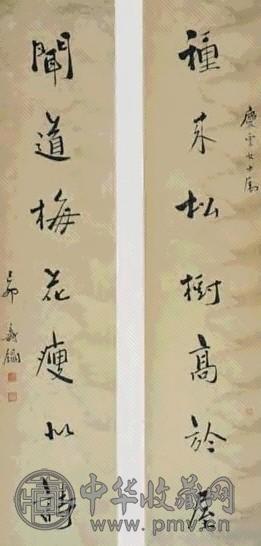 慶雲女士屬
種来松樹高於屋
聞道梅花瘦似詩
中华收藏网
www.pmv.cn